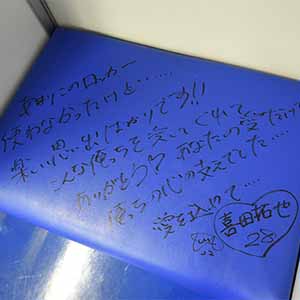 あまりこのロッカー
使わなかったけど……
楽しい思い出ばかりです!!
こんな俺らを愛してくれて
ありがとう? あなたの愛だけが
俺らの心の支えでした……
愛を込めて……
吉田拓也
28